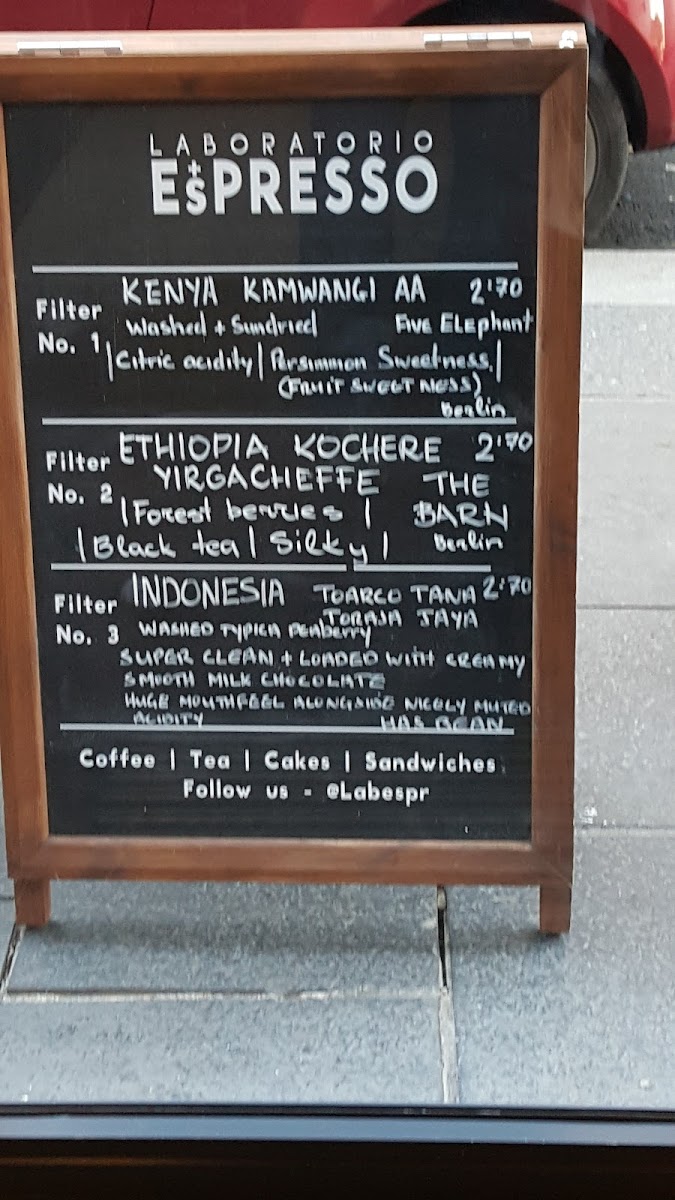 LABORATORIO
ESPRESSO
Filter No. 1
KENYA KAMWANGI AA 2'70
Washed + Sundried Five Elephant
|Citric acidity| Persimmon Sweetness.|
(FRUIT SWEETNESS)
Berlin
Filter No. 2
ETHIOPIA KOCHERE 2'70
YIRGACHEFFE THE
|Forest berries | BARN
|Black tea| Silky| Berlin
Filter No. 3
INDONESIA TOARCO TANA 2'70
TORAJA JAYA
WASHED TYPICA Peaberry
SUPER CLEAN + LOADED WITH CREAMY
SMOOTH MILK CHOCOLATE
HUGE MOUTHFEEL ALONGSIDE NICELY MUTED
ACIDITY HAS BEAN
Coffee | Tea | Cakes | Sandwiches
Follow us - @Labespr